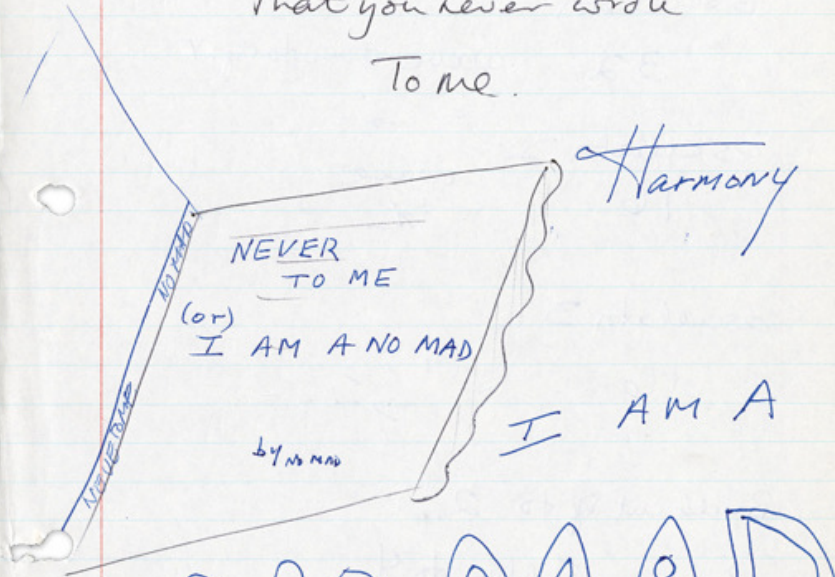 That you never wrote
To me.
Harmony
NO MAD
NEVER
TO ME
(or)
I AM A NO MAD
by NO MAD
I AM A